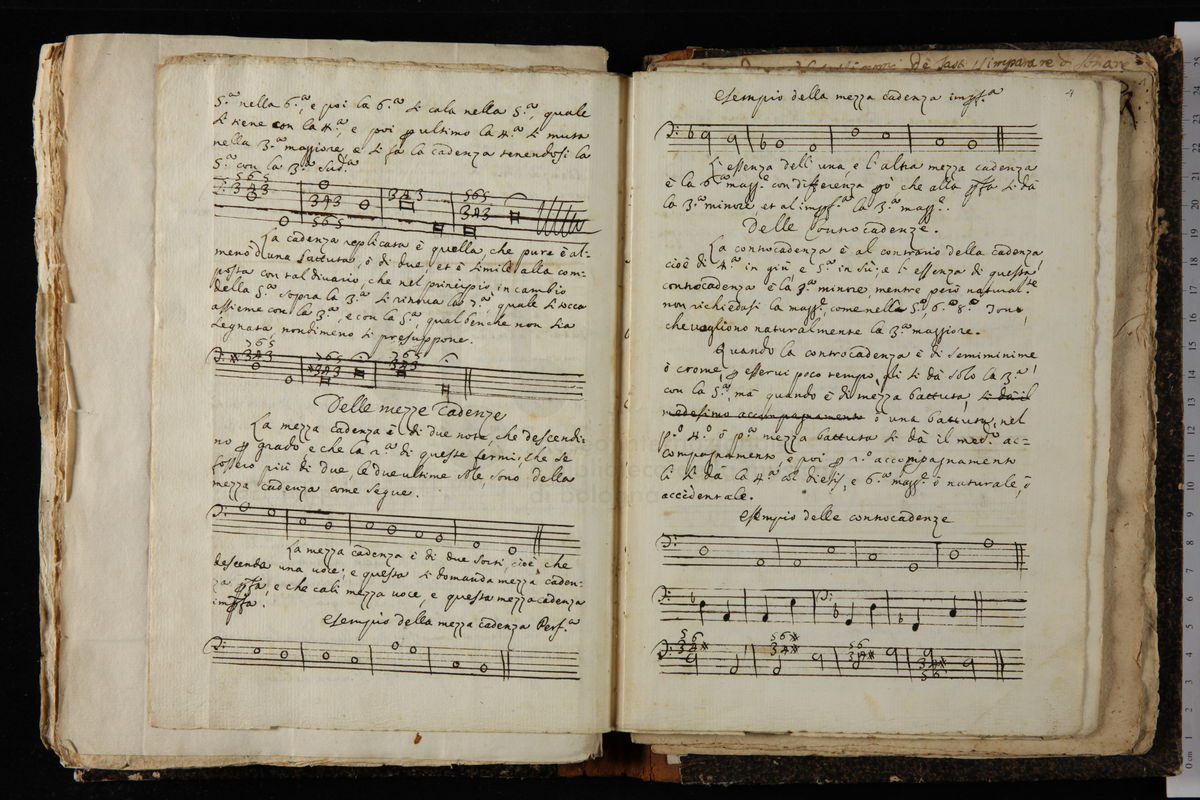 5.ª nella 6.ª, e poi la 6.ª si cala nella 5.ª, quale
si tiene con la 4.ª, e poi p ultimo la 4.ª si muta
nella 3.ª maggiore e si fa la cadenza tenendosi la
5.ª con la 3.ª sud.ª
565
343
343
565
343
565
343
La cadenza replicata è quella, che pure è al-
meno d'una battuta, ò di due, et è simile alla com-
posta con tal divario, che nel principio, in cambio
della 5.ª sopra la 3.ª si ritrova la 7.ª, quale si tocca
assieme con la 3.ª, e con la 5.ª, qual benche non sia
segnata nondimeno si presuppone.
765
343
765
343
765
343
Delle mezze Cadenze
La mezza cadenza è di due note, che descendi-
no p grado e che la 2.ª di queste fermi, che se
fossero più di due, le due ultime sono della
mezza cadenza come segue.
La mezza cadenza è di due sorti, cioè, che
descenda una voce, e questa si domanda mezza caden-
za pfta, e che cali mezza voce, e questa mezza cadenza
impfta.
Esempio della mezza cadenza Perf.ª
4
Esempio della mezza cadenza impf.ª
L'essenza dell'una, e l'altra mezza cadenza
è la 6.ª magg.e con differenza pò che alla pfta si dà
la 3.ª minore, et al impf.ª la 3.ª magg.e.
Delle Controcadenze.
La controcadenza è al contrario della cadenza,
cioè di 4.ª in giù e 5.ª in sù; e l'essenza di questa
controcadenza è la 3.ª minore, mentre però natural.te
non richiedasi la magg.e come nella 5.º 6.º 8.º Tono,
che vogliono naturalmente la 3.ª maggiore.
Quando la controcadenza è di semiminime
ò crome, p esservi poco tempo, gli si dà solo la 3.ª,
con la 5.ª, mà quando è di mezza battuta, si dà il
medesimo accompagnamento ò una battuta, nel
p.º 4.º ò p.ª mezza battuta si dà il med.º ac-
compagnamento e poi p 2.º accompagnamento
si dà la 4.ª col diesis, e 6.ª magg.e ò naturale, ò
accidentale.
Esempio delle controcadenze
56
34
56
34
56
34
34
56